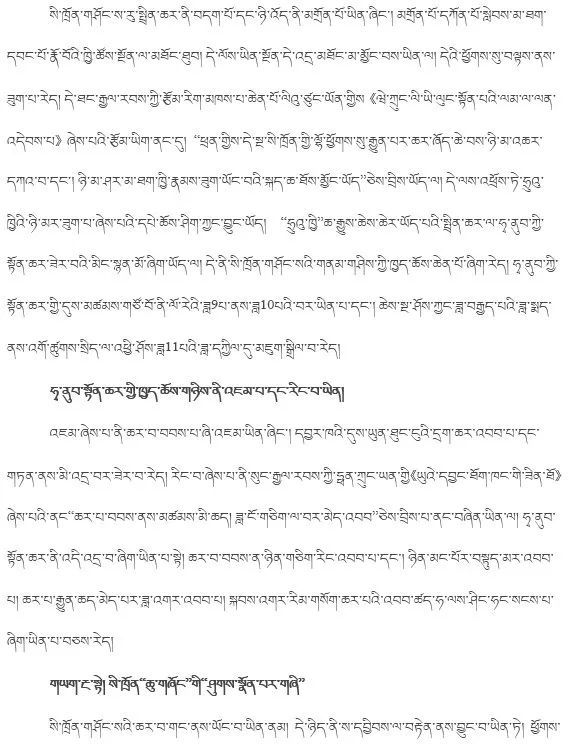 སི་ཁྲོན་གཤོང་ས་རུ་སྤྲིན་ཆར་ནི་བདག་པོ་དང་ཉི་འོད་ནི་མགྲོན་པོ་ཡིན་ཞིང་། མགྲོན་པོ་དཀོན་པོ་སླེབས་མ་ཐག་
དབང་པོ་རྣོ་བོའི་ཁྱི་ཚོས་སྔོན་ལ་མཐོང་ཐུབ། དེ་ལོས་ཡིན་སྔོན་དེ་འདྲ་མཐོང་མ་མྱོང་བས་ཡིན་ལ། དེའི་ཕྱོགས་སུ་བལྟས་ནས་
ཟུག་པ་རེད། དེ་ཐང་རྒྱལ་རབས་ཀྱི་རྩོམ་རིག་མཁས་པ་ཆེན་པོ་ལིའུ་ཙུང་ཡོན་གྱིས《ཝེ་ཀྲུང་ལི་ཡི་ལུང་སྟོན་པའི་ལམ་ལ་ལན་
འདེབས་པ》ཞེས་པའི་རྩོམ་ཡིག་ནང་དུ། “ཕྲན་གྱིས་དེ་སྔ་སི་ཁྲོན་གྱི་ལྷོ་ཕྱོགས་སུ་རྒྱུན་པར་ཆར་ཞོད་ཆེ་བས་ཉི་མ་འཆར་
དཀའ་བ་དང་། ཉི་མ་ཤར་མ་ཐག་ཁྱི་རྣམས་ཟུག་ཡོང་བའི་སྐད་ཆ་ཐོས་མྱོང་ཡོད”ཅེས་བྲིས་ཡོད་ལ། དེ་ལས་འཕྲོས་ཏེ་ཧྲུའུ་
ཁྱིའི་ཉི་མར་ཟུག་པ་ཞེས་པའི་དཔེ་ཆོས་ཤིག་ཀྱང་བྱུང་ཡོད། “ཧྲུའུ་ཁྱི”ཆ་རྒྱུས་ཆེས་ཆེར་ཡོད་པའི་སྤྲིན་ཆར་ལ་ཧྭ་ནུབ་ཀྱི་
སྟོན་ཆར་ཟེར་བའི་མིང་སྙན་མོ་ཞིག་ཡོད་ལ། དེ་ནི་སི་ཁྲོན་གཤོང་སའི་གནམ་གཤིས་ཀྱི་ཁྱད་ཆོས་ཆེན་པོ་ཞིག་རེད། ཧྭ་ནུབ་ཀྱི་
སྟོན་ཆར་གྱི་དུས་མཚམས་གཙོ་བོ་ནི་ལོ་རེའི་ཟླ9པ་ནས་ཟླ10པའི་བར་ཡིན་པ་དང་། ཆེས་སྔ་ཤོས་ཀྱང་ཟླ་བརྒྱད་པའི་ཟླ་སྨད་
ནས་འགོ་ཚུགས་སྲིད་ལ་འཕྱི་ཤོས་ཟླ11པའི་ཟླ་དཀྱིལ་དུ་མཇུག་སྒྲིལ་བ་རེད།
ཧྭ་ནུབ་སྟོན་ཆར་གྱི་ཁྱད་ཆོས་གཉིས་ནི་འཇམ་པ་དང་རིང་བ་ཡིན།
འཇམ་ཞེས་པ་ནི་ཆར་བ་བབས་པ་ཞི་འཇམ་ཡིན་ཞིང་། དབྱར་ཁའི་དུས་ཡུན་ཐུང་ངུའི་དྲག་ཆར་འབབ་པ་དང་
གཏན་ནས་མི་འདྲ་བར་ཟེར་བ་རེད། རིང་བ་ཞེས་པ་ནི་སུང་རྒྱལ་རབས་ཀྱི་ཧྥན་ཀྲུང་ཡན་གྱི《ཡུའེ་དབྱང་ཐོག་ཁང་གི་ཟིན་ཐོ》
ཞེས་པའི་ནང“ཆར་པ་བབས་ནས་མཚམས་མི་ཆད། ཟླ་ངོ་གཅིག་ལ་བར་མེད་འབབ”ཅེས་བྲིས་པ་ནང་བཞིན་ཡིན་ལ། ཧྭ་ནུབ་
སྟོན་ཆར་ནི་འདི་འདྲ་བ་ཞིག་ཡིན་པ་སྟེ། ཆར་བ་བབས་ན་ཉིན་གཅིག་རིང་འབབ་པ་དང་། ཉིན་མང་པོར་བསྟུད་མར་འབབ་
པ། ཆར་པ་རྒྱུན་ཆད་མེད་པར་ཟླ་འགར་འབབ་པ། སྐབས་འགར་རིམ་གསོག་ཆར་པའི་འབབ་ཚད་ཧ་ལས་ཤིང་ཧང་སངས་པ་
ཞིག་ཡིན་པ་བཅས་རེད།
གཡག་ང་སྟེ། སི་ཁྲོན“ཆུ་གཞོང”གི“ཤུགས་སྣོན་པར་གཞི”
སི་ཁྲོན་གཤོང་སའི་ཆར་བ་གང་ནས་ཡོང་བ་ཡིན་ནམ། དེ་ཉིད་ནི་ས་དབྱིབས་ལ་བརྟེན་ནས་བྱུང་བ་ཡིན་ཏེ། ཕྱོགས་